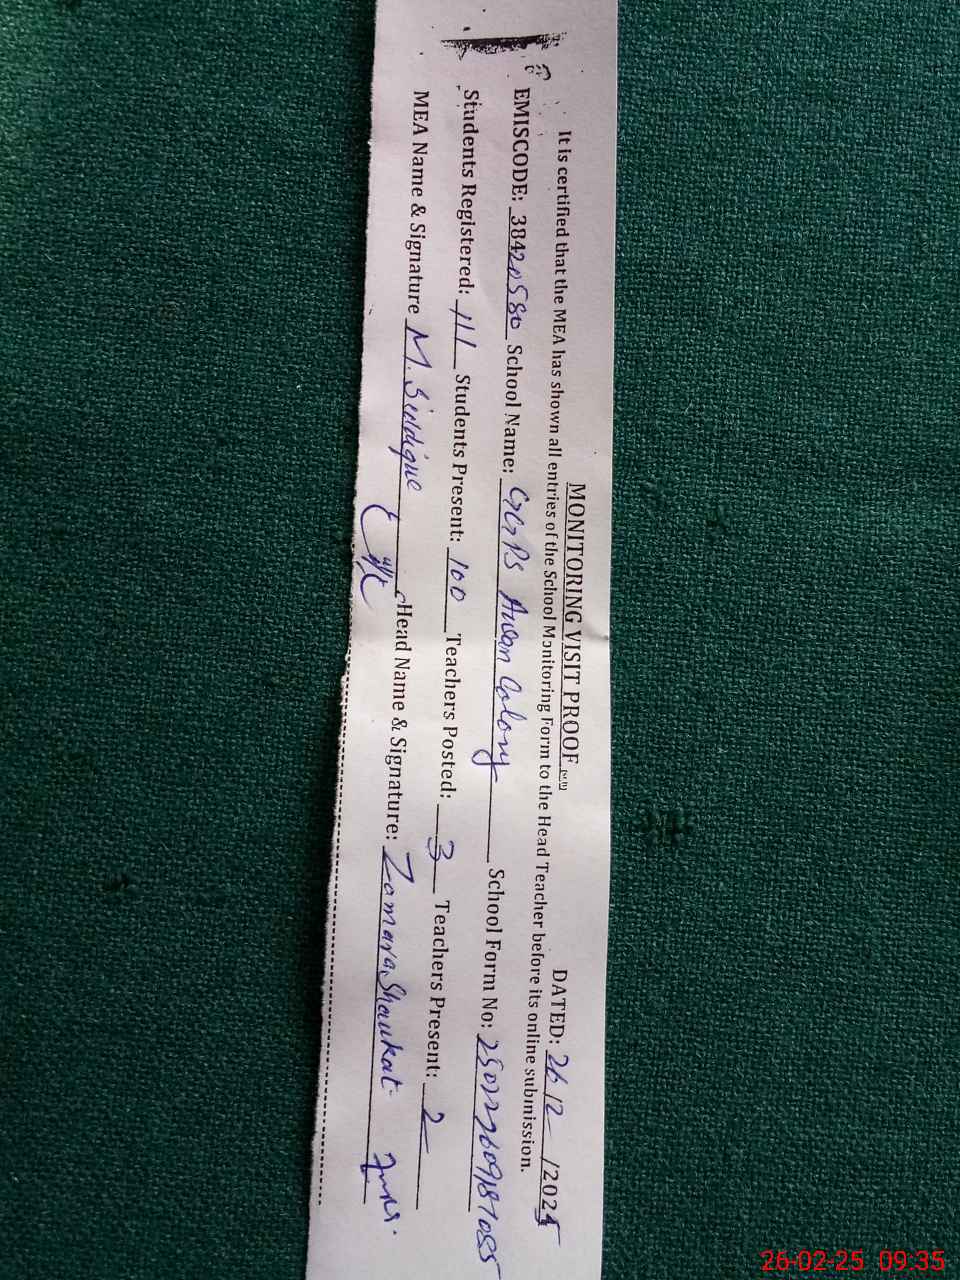 MONITORING VISIT PROOF
DATED: 26/2/2025
It is certified that the MEA has shown all entries of the School Monitoring Form to the Head Teacher before its online submission.
EMISCODE: 38420580 School Name: GGPS Awan Colony School Form No:
Students Registered: 111 Students Present: 100 Teachers Posted: 3 Teachers Present: 2
MEA Name & Signature M. Siddique Head Name & Signature: Zomara Shaukat
26-02-25 09:35